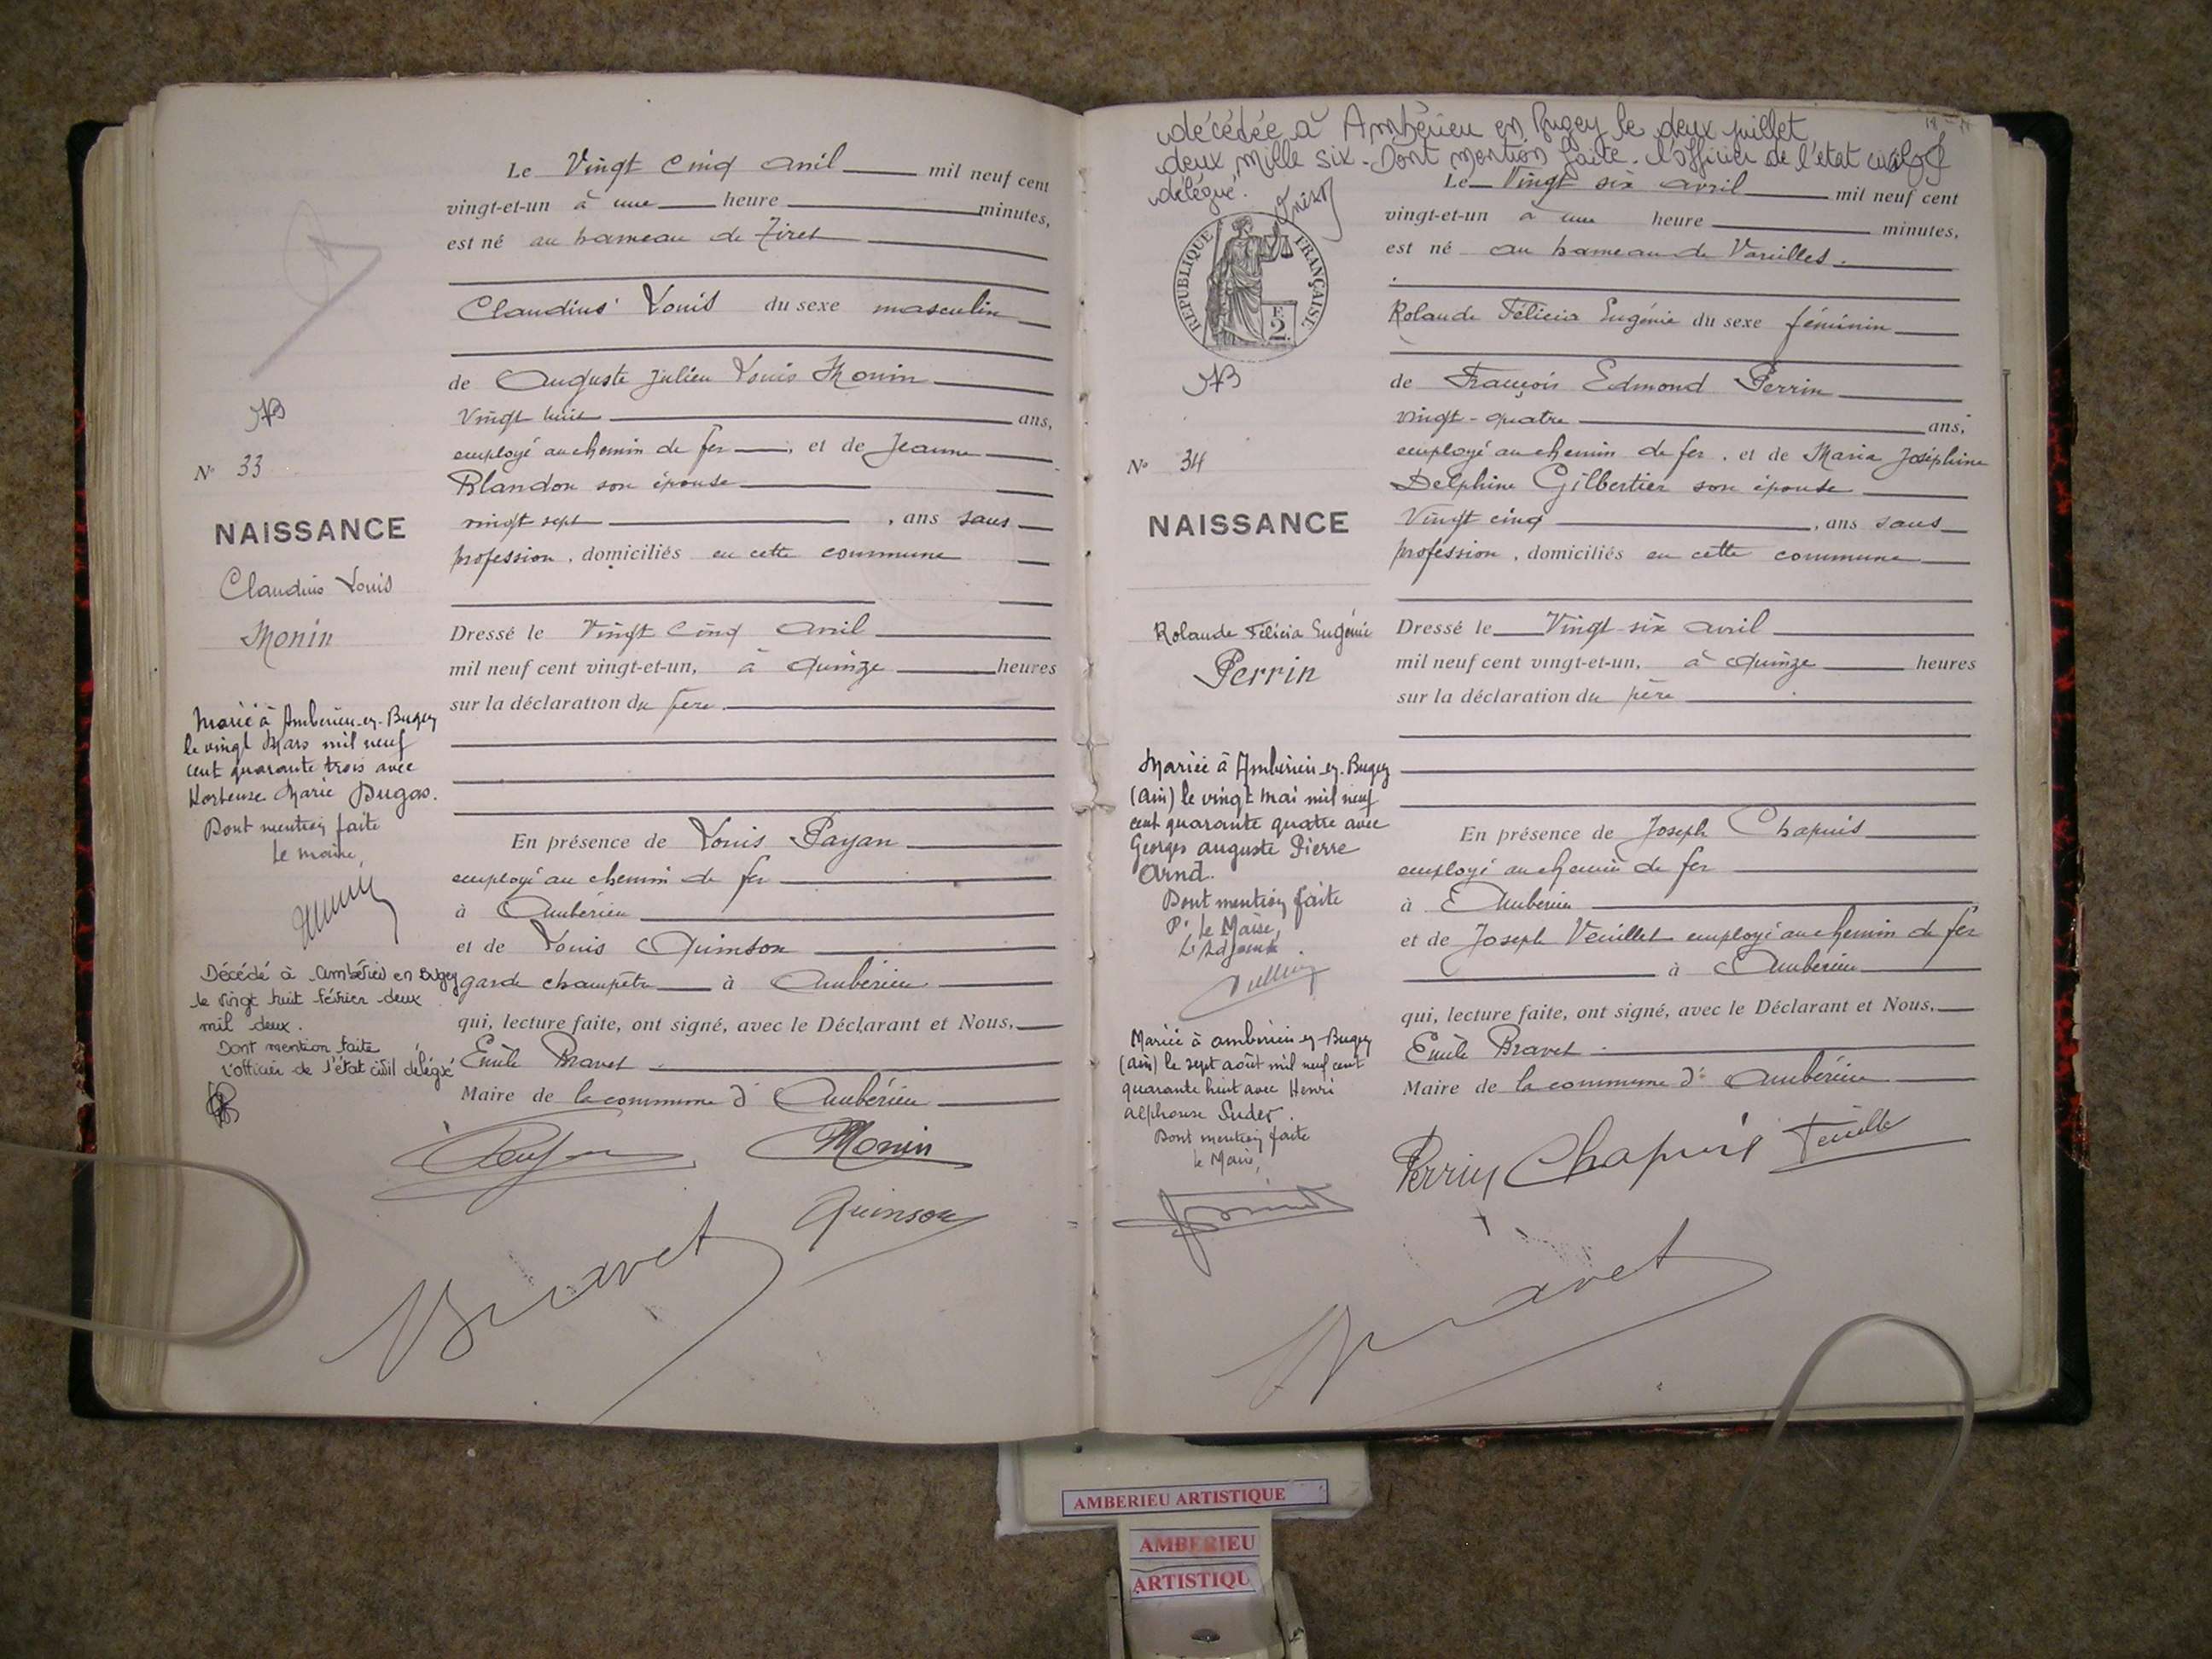 Le Vingt cinq avril mil neuf cent
vingt-et-un à une heure minutes,
est né au hameau de Tiret
Claudius Louis du sexe masculin
de Auguste Julien Louis Monin
Vingt huit ans,
employé au chemin de fer, et de Jeanne
Blandon son épouse
vingt sept, ans sans
profession, domiciliés en cette commune
Dressé le Vingt cinq avril
mil neuf cent vingt-et-un, à quinze heures
sur la déclaration du père
En présence de Louis Payan
employé au chemin de fer
à Ambérieu
et de Louis Quinson
garde champêtre à Ambérieu
qui, lecture faite, ont signé, avec le Déclarant et Nous,
Emile Bravet
Maire de la commune d'Ambérieu
Monin
Quinson
Bravet
N° 33
NAISSANCE
Claudius Louis
Monin
Marié à Ambérieu-en-Bugey
le vingt Mars mil neuf
cent quarante trois avec
Hortense Marie Dugas.
Dont mention faite
Le maire,
Décédé à Ambérieu en Bugey
le vingt huit février deux
mil deux.
Dont mention faite
L'officier de l'état civil délégué
décédée à Ambérieu en Bugey le deux juillet
deux mille six. Dont mention faite. L'officier de l'état civil
délégué.
RÉPUBLIQUE FRANÇAISE
2
Le Vingt six avril mil neuf cent
vingt-et-un à une heure minutes,
est né au hameau de Vareilles.
Rolande Félicia Eugénie du sexe féminin
de François Edmond Perrin
vingt-quatre ans,
employé au chemin de fer, et de Maria Joséphine
Delphine Gilbertier son épouse
Vingt cinq, ans sans
profession, domiciliés en cette commune
Dressé le Vingt-six avril
mil neuf cent vingt-et-un, à quinze heures
sur la déclaration du père
En présence de Joseph Chapuis
employé au chemin de fer
à Ambérieu
et de Joseph Veuillet employé au chemin de fer
à Ambérieu
qui, lecture faite, ont signé, avec le Déclarant et Nous,
Emile Bravet
Maire de la commune d'Ambérieu
Perrin Chapuis
Bravet
N° 34
NAISSANCE
Rolande Félicia Eugénie
Perrin
Mariée à Ambérieu-en-Bugey
(Ain) le vingt mai mil neuf
cent quarante quatre avec
Georges Auguste Pierre
Arnd.
Dont mention faite
Pr. Le Maire,
L'Adjoint
Mariée à Ambérieu en-Bugey
(Ain) le sept août mil neuf cent
quarante huit avec Henri
Alphonse Suder.
Dont mention faite
Le Maire,
AMBERIEU ARTISTIQUE
AMBERIEU
ARTISTIQU